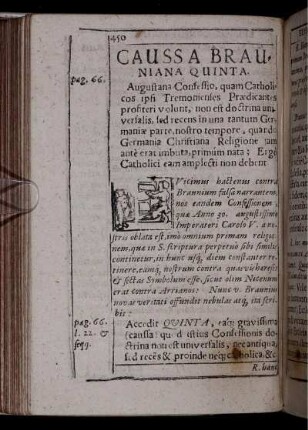 450
CAUSSA BRAU-
NIANA QUINTA.
pag. 66.
Augustana Confessio, quam Catholi-
cos ipsi Tremonienses Prædicantes
profiteri volunt, non est doctrina uni-
versalis, sed recens in una tantum Ger-
maniæ parte, nostro tempore, quando
Germania Christiana Religione jam
antè erat imbuta, primùm nata; Ergò
Catholici eam amplecti non debent
Vicimus hactenus contra
Braunium falsa narrantem,
nos eandem Confessionem,
quæ Anno 30. augustissimo
Imperatori Carolo V. a no-
stris oblata est, imò omnium primam religio-
nem, quæ in S. scriptura perpetuò sibi simili
continetur, in hunc usq; diem constanter re-
tinere, eamq; nostrum contra quasvis hæreses
& sectas Symbolum esse, sicut olim Nicenum
erat contra Arrianos: Nunc v. Braunius
novæ veritati offundit nebulas atq; ita scri-
bit:
pag. 66.
l. 22. &
seqq.
Accedit QUINTA, eaq; gravissima
caussa: quòd istius Confessionis do-
ctrina non est universalis, nec antiqua,
sed recēs & proinde neq; catholica, &c
R. hanc